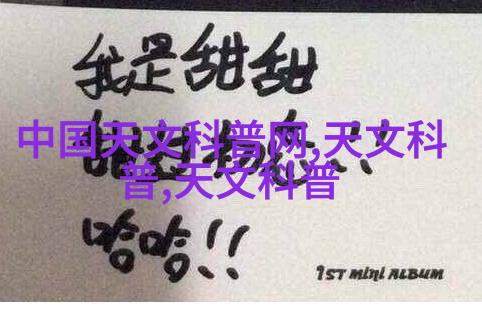 我是甜甜
中国天文科普网,天文科
普,天文科普
哈哈!!
1ST MINI ALBUM